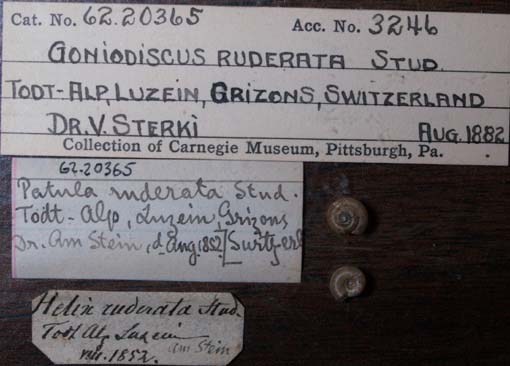 Cat. No. 62.20365 Acc. No. 3246
GONIODISCUS RUDERATA STUD.
TODT-ALP, LUZEIN, GRIZONS, SWITZERLAND
DR. V. STERKI AUG. 1882
Collection of Carnegie Museum, Pittsburgh, Pa.
62.20365
Patula ruderata Stud.
Todt-Alp, Luzein Grizons
Dr. Am Stein, d. Aug. 1852. Switzerl
Helix ruderata Stud.
Todt Alp Luzein
1852. Am Stein